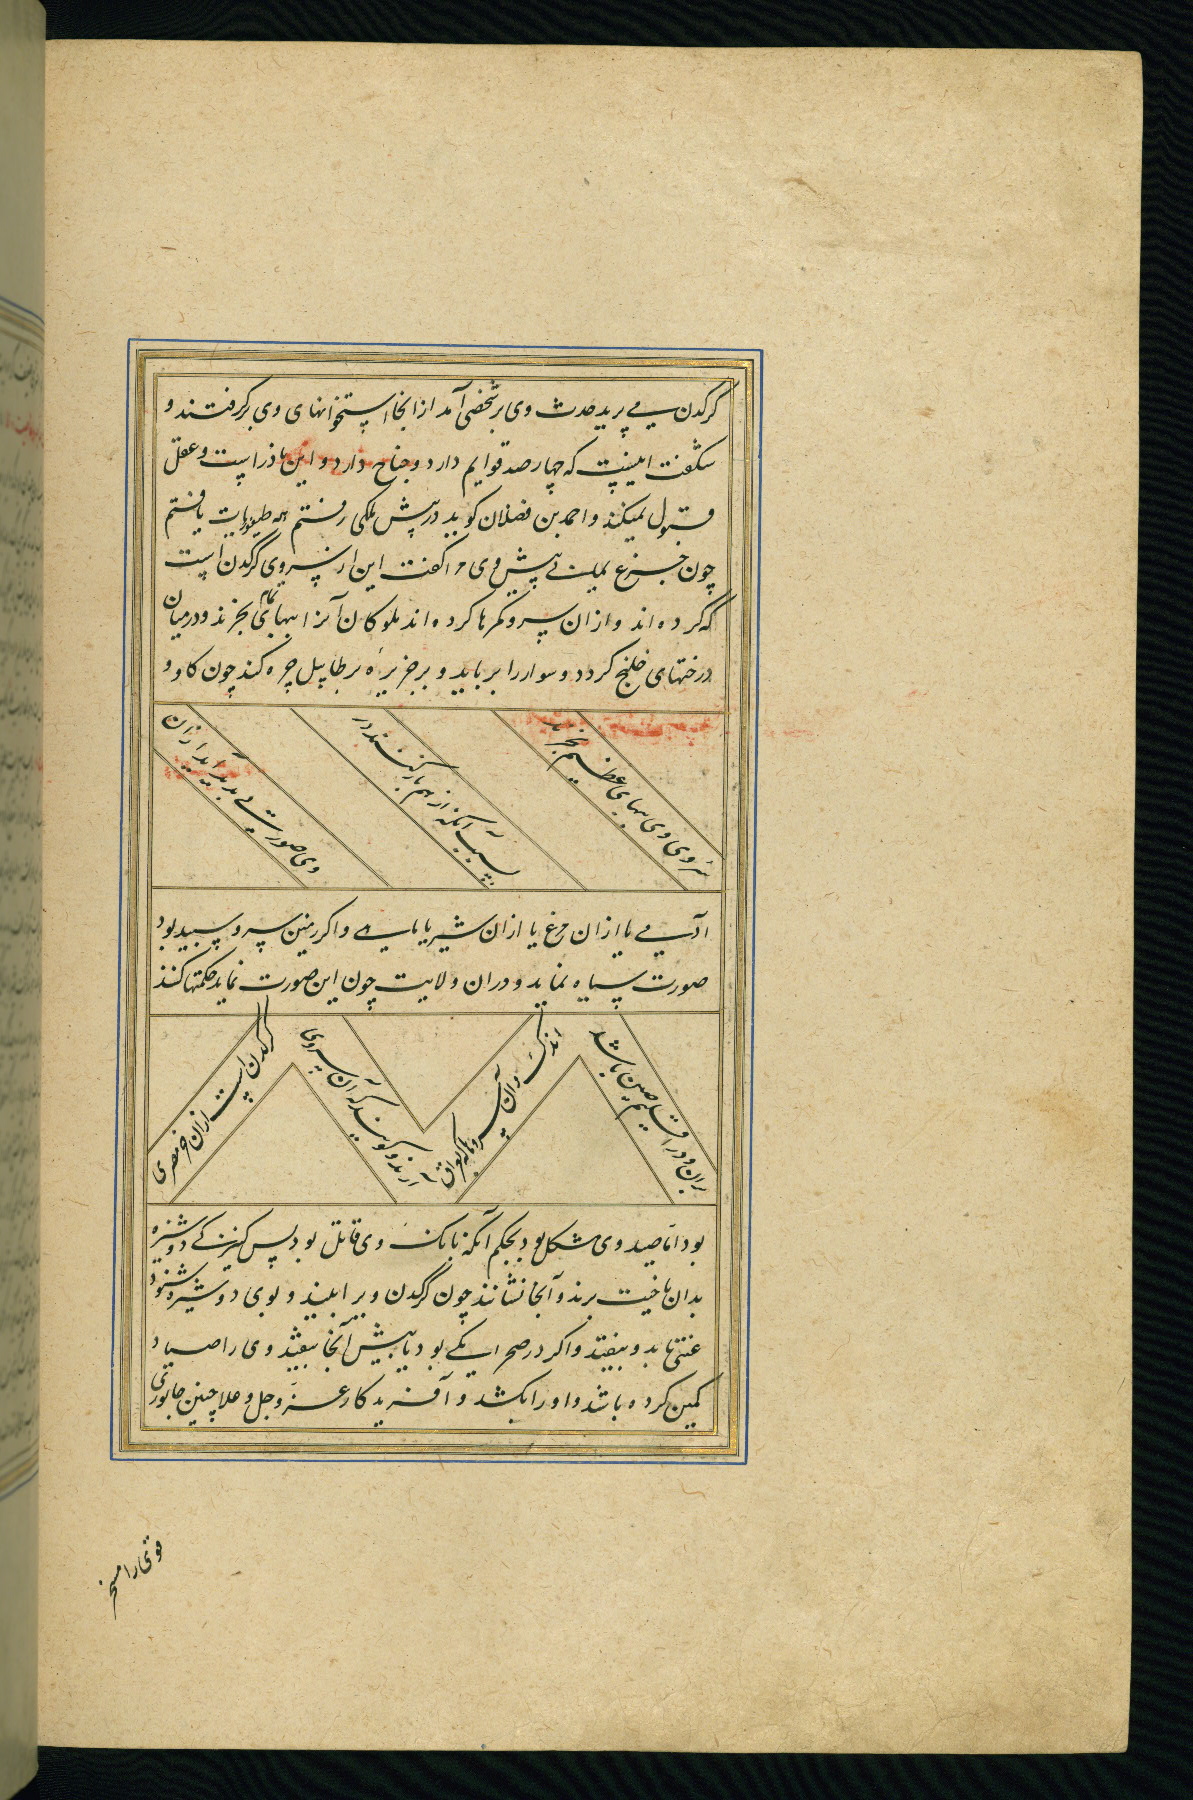 کرکدن می پرید حدث وی بر شخصی آمد از انجا استخوانهای وی برکرفتند و
شکفت اینست که چهارصد قوایم دارد و جناح دارد و این نادر است و عقل
قبول نمیکند و احمد بن فضلان کوید در پیش ملکی رفتم همه طیفوریات یافتم
چون جزع یمانی پیش وی مرا کفت این از سروی کرکدن است
که کرده اند و ازان سرو کمرها کرده اند ملوکان آنرا ببهای تمام بخرند و در میان
درختهای خلنج کردد و سوار را برباید و بر جزیره بر طاپیل چره کند چون کاو و
سروی وی ببهای عظیم بخرند
بسبب آنکه از هم بازکنند در
وی صورتی بدید آید ازان
آدمی یا ازان مرغ یا ازان شیر یا ماهی و اکر زمین سرو سپید بود
صورت سیاه نماید و دران ولایت چون این صورت نماید حکمتها کنند
بران و در اقلیم صین باشد
اندک و آن سروها که بعراق
آرند و کویند که آن سروی
کرکدن است ازان خر مصری
بود اما صید وی مشکل بود بحکم آنکه بانک وی قاتل بود پس کنیزکی دوشیزه
بدان ناحیت برند و آنجا نشانند چون کرکدن ویرا بیند و بوی دوشیزه شنود
غشی یابد و بیفتد و اکر در صحرا یکی بود یا بیش آنجا بیفتد وی را صیاد
کمین کرده باشد و او را بکشد و آفریدکار عز و جل و علا چنین جانوری
قوی را مسخر